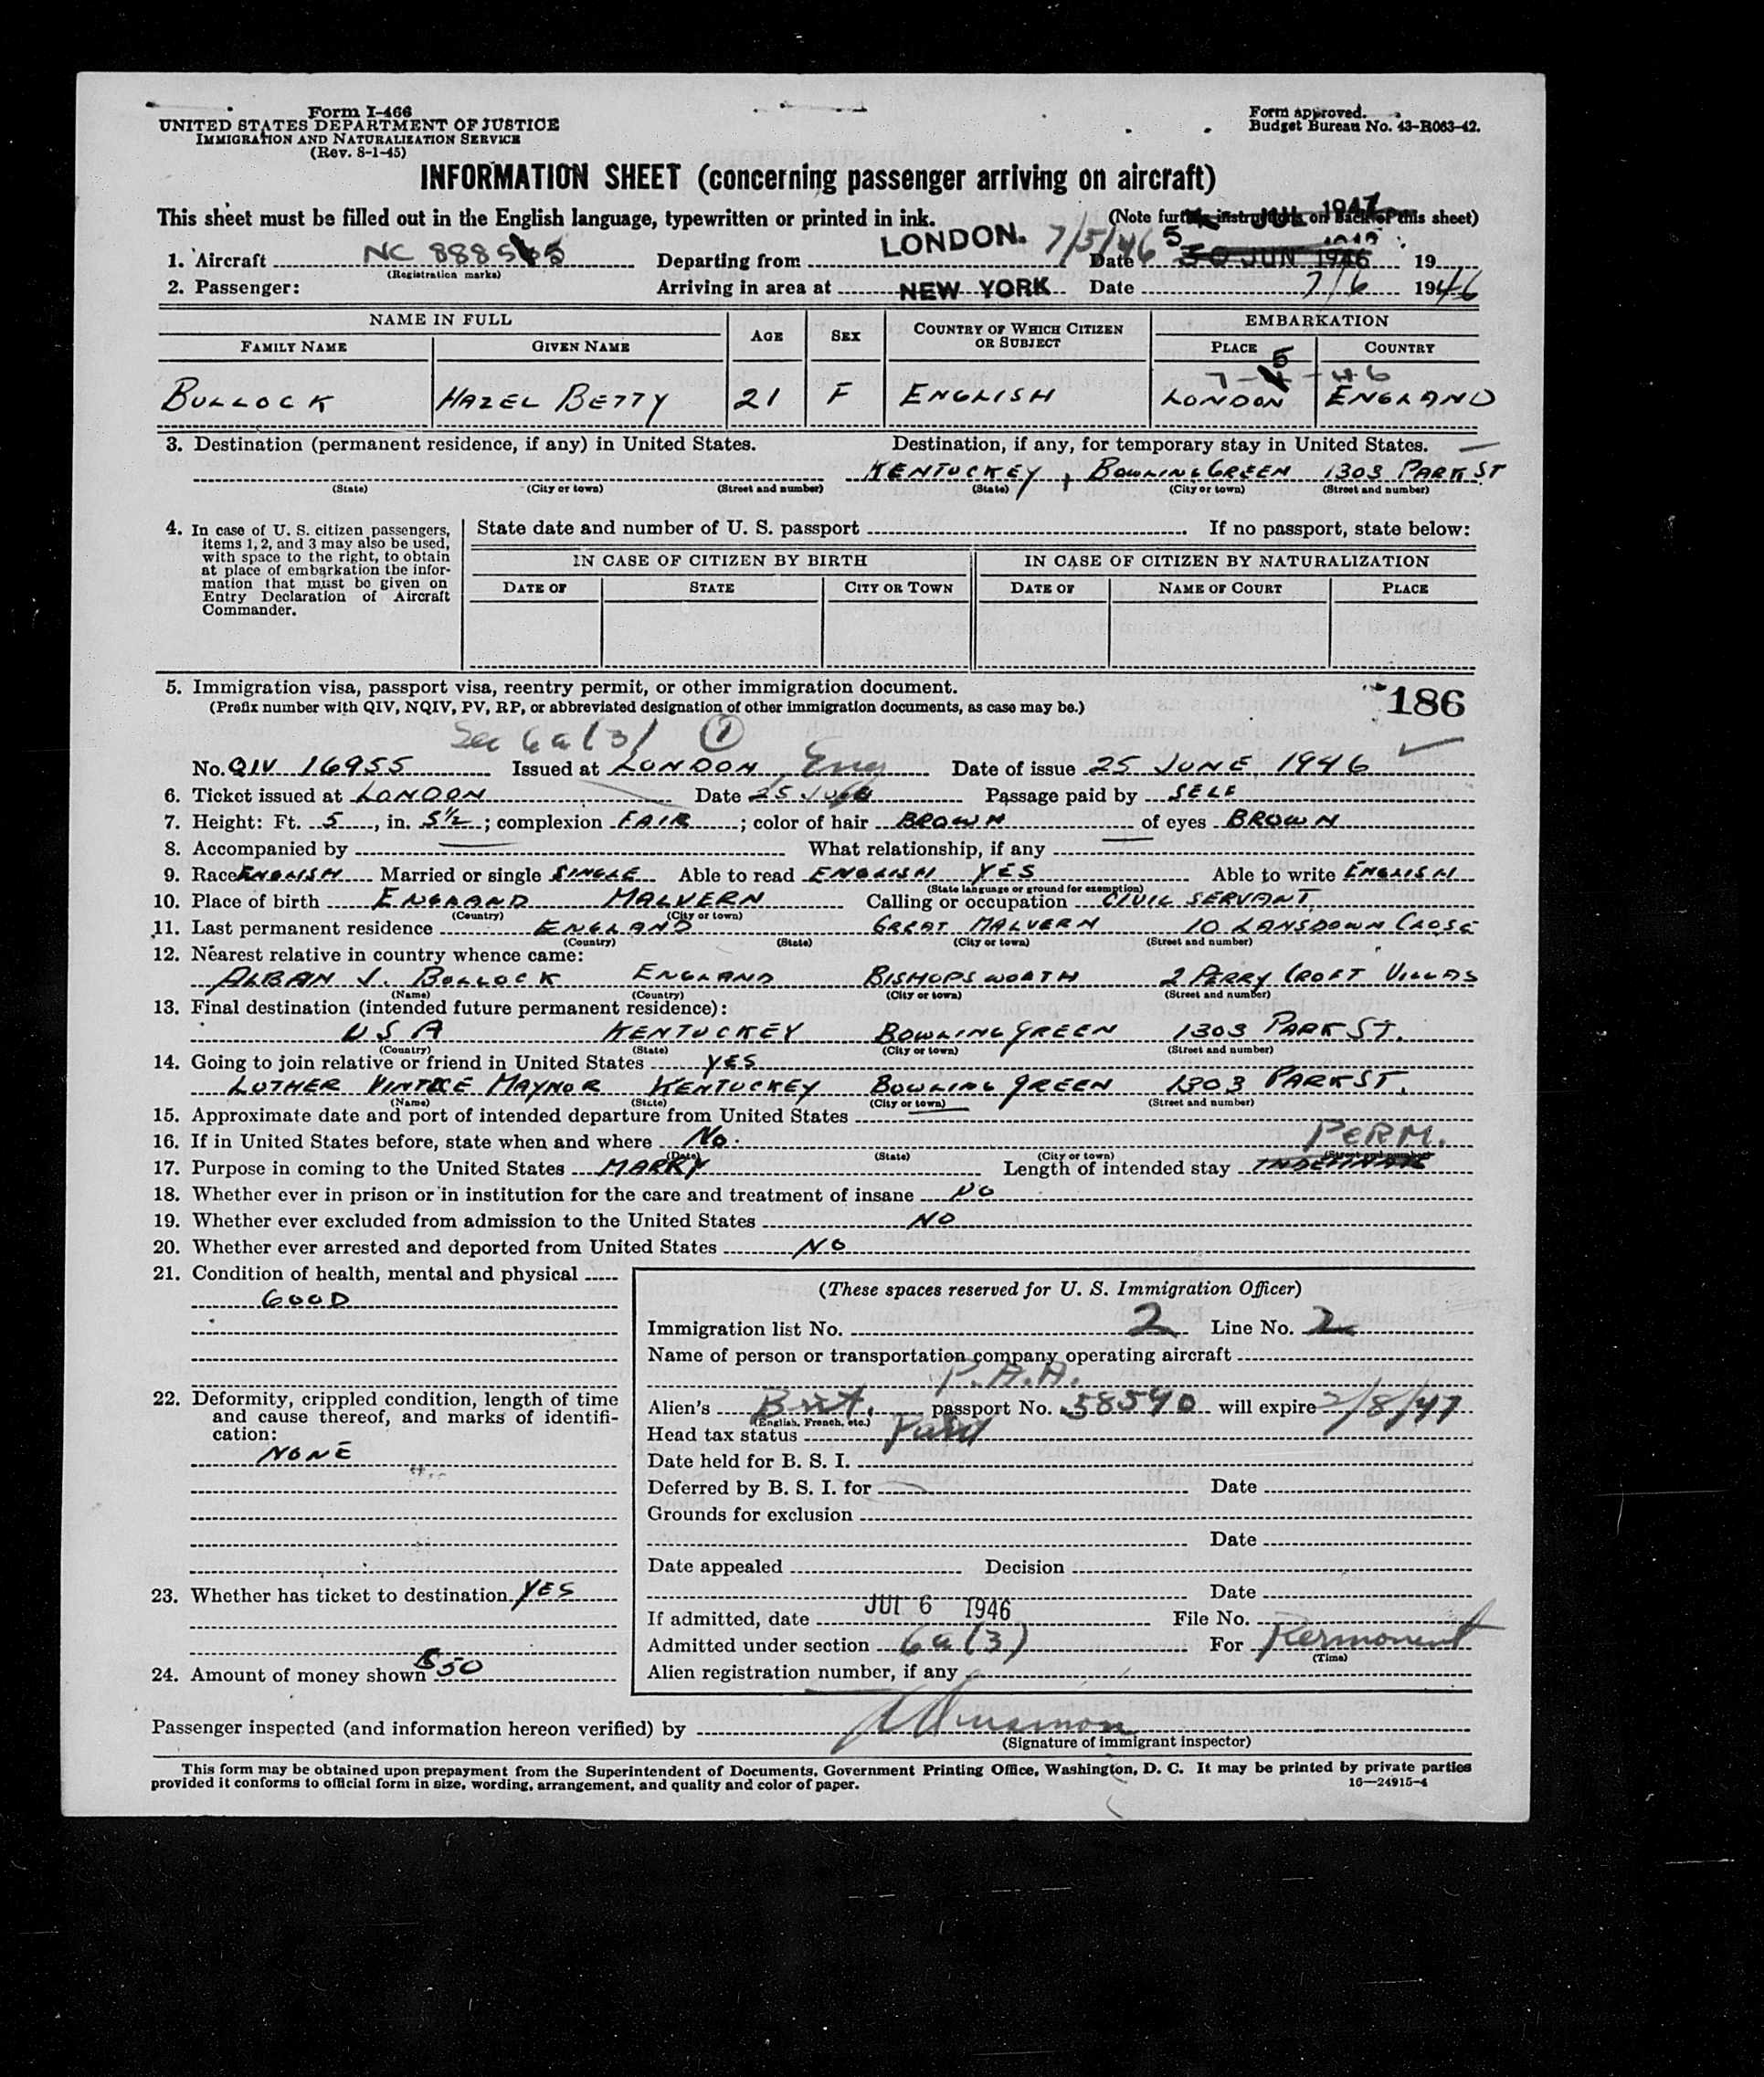 Form I-466
UNITED STATES DEPARTMENT OF JUSTICE
IMMIGRATION AND NATURALIZATION SERVICE
(Rev. 8-1-45)
Form approved.
Budget Bureau No. 43-R063-42.
INFORMATION SHEET (concerning passenger arriving on aircraft)
This sheet must be filled out in the English language, typewritten or printed in ink. (Note further instructions on back of this sheet)
JUL 1947
1. Aircraft NC 888 Departing from LONDON. 7/5/46 Date 5 30 JUN 1946 19
(Registration marks)
2. Passenger: Arriving in area at NEW YORK Date 7/6 1946
NAME IN FULL AGE SEX COUNTRY OF WHICH CITIZEN OR SUBJECT EMBARKATION
FAMILY NAME GIVEN NAME PLACE COUNTRY
7-5-46
BULLOCK HAZEL BETTY 21 F ENGLISH LONDON ENGLAND
3. Destination (permanent residence, if any) in United States. Destination, if any, for temporary stay in United States. —
KENTUCKY, BOWLING GREEN 1303 PARK ST
(State) (City or town) (Street and number) (State) (City or town) (Street and number)
4. In case of U. S. citizen passengers, items 1, 2, and 3 may also be used, with space to the right, to obtain at place of embarkation the information that must be given on Entry Declaration of Aircraft Commander.
State date and number of U. S. passport If no passport, state below:
IN CASE OF CITIZEN BY BIRTH IN CASE OF CITIZEN BY NATURALIZATION
DATE OF STATE CITY OR TOWN DATE OF NAME OF COURT PLACE
5. Immigration visa, passport visa, reentry permit, or other immigration document.
(Prefix number with QIV, NQIV, PV, RP, or abbreviated designation of other immigration documents, as case may be.)
186
Sec 6a(3) 1
No. QIV 16955 Issued at LONDON Eng Date of issue 25 JUNE, 1946
6. Ticket issued at LONDON Date 25 Passage paid by SELF
7. Height: Ft. 5, in. 5½; complexion FAIR; color of hair BROWN of eyes BROWN
8. Accompanied by — What relationship, if any —
9. Race ENGLISH Married or single SINGLE Able to read ENGLISH YES Able to write ENGLISH
(State language or ground for exemption)
10. Place of birth ENGLAND MALVERN Calling or occupation CIVIL SERVANT.
(Country) (City or town)
11. Last permanent residence ENGLAND GREAT MALVERN 10 LANSDOWN CLOSE
(Country) (State) (City or town) (Street and number)
12. Nearest relative in country whence came:
ALBAN J. BULLOCK ENGLAND BISHOPSWORTH 2 PERRY CROFT VILLAS
(Name) (Country) (City or town) (Street and number)
13. Final destination (intended future permanent residence):
USA KENTUCKEY BOWLING GREEN 1303 PARK ST.
(Country) (State) (City or town) (Street and number)
14. Going to join relative or friend in United States YES
LUTHER MAYNOR KENTUCKEY BOWLING GREEN 1303 PARK ST.
(Name) (State) (City or town) (Street and number)
15. Approximate date and port of intended departure from United States —
16. If in United States before, state when and where No. PERM.
(Date) (State) (City or town) (Street and number)
17. Purpose in coming to the United States MARRY Length of intended stay
18. Whether ever in prison or in institution for the care and treatment of insane NO
19. Whether ever excluded from admission to the United States NO
20. Whether ever arrested and deported from United States NO
21. Condition of health, mental and physical
GOOD
22. Deformity, crippled condition, length of time and cause thereof, and marks of identification:
NONE
23. Whether has ticket to destination YES
24. Amount of money shown $50
(These spaces reserved for U. S. Immigration Officer)
Immigration list No. 2 Line No. 2
Name of person or transportation company operating aircraft
P.A.A.
Alien's Brit. passport No. 58590 will expire 2/8/47
(English, French, etc.)
Head tax status Paid
Date held for B. S. I.
Deferred by B. S. I. for Date
Grounds for exclusion
Date
Date appealed Decision
Date
If admitted, date JUL 6 1946 File No.
Admitted under section 6a(3) For Permanent
(Time)
Alien registration number, if any
Passenger inspected (and information hereon verified) by
(Signature of immigrant inspector)
This form may be obtained upon prepayment from the Superintendent of Documents, Government Printing Office, Washington, D. C. It may be printed by private parties
provided it conforms to official form in size, wording, arrangement, and quality and color of paper. 16—24915-4